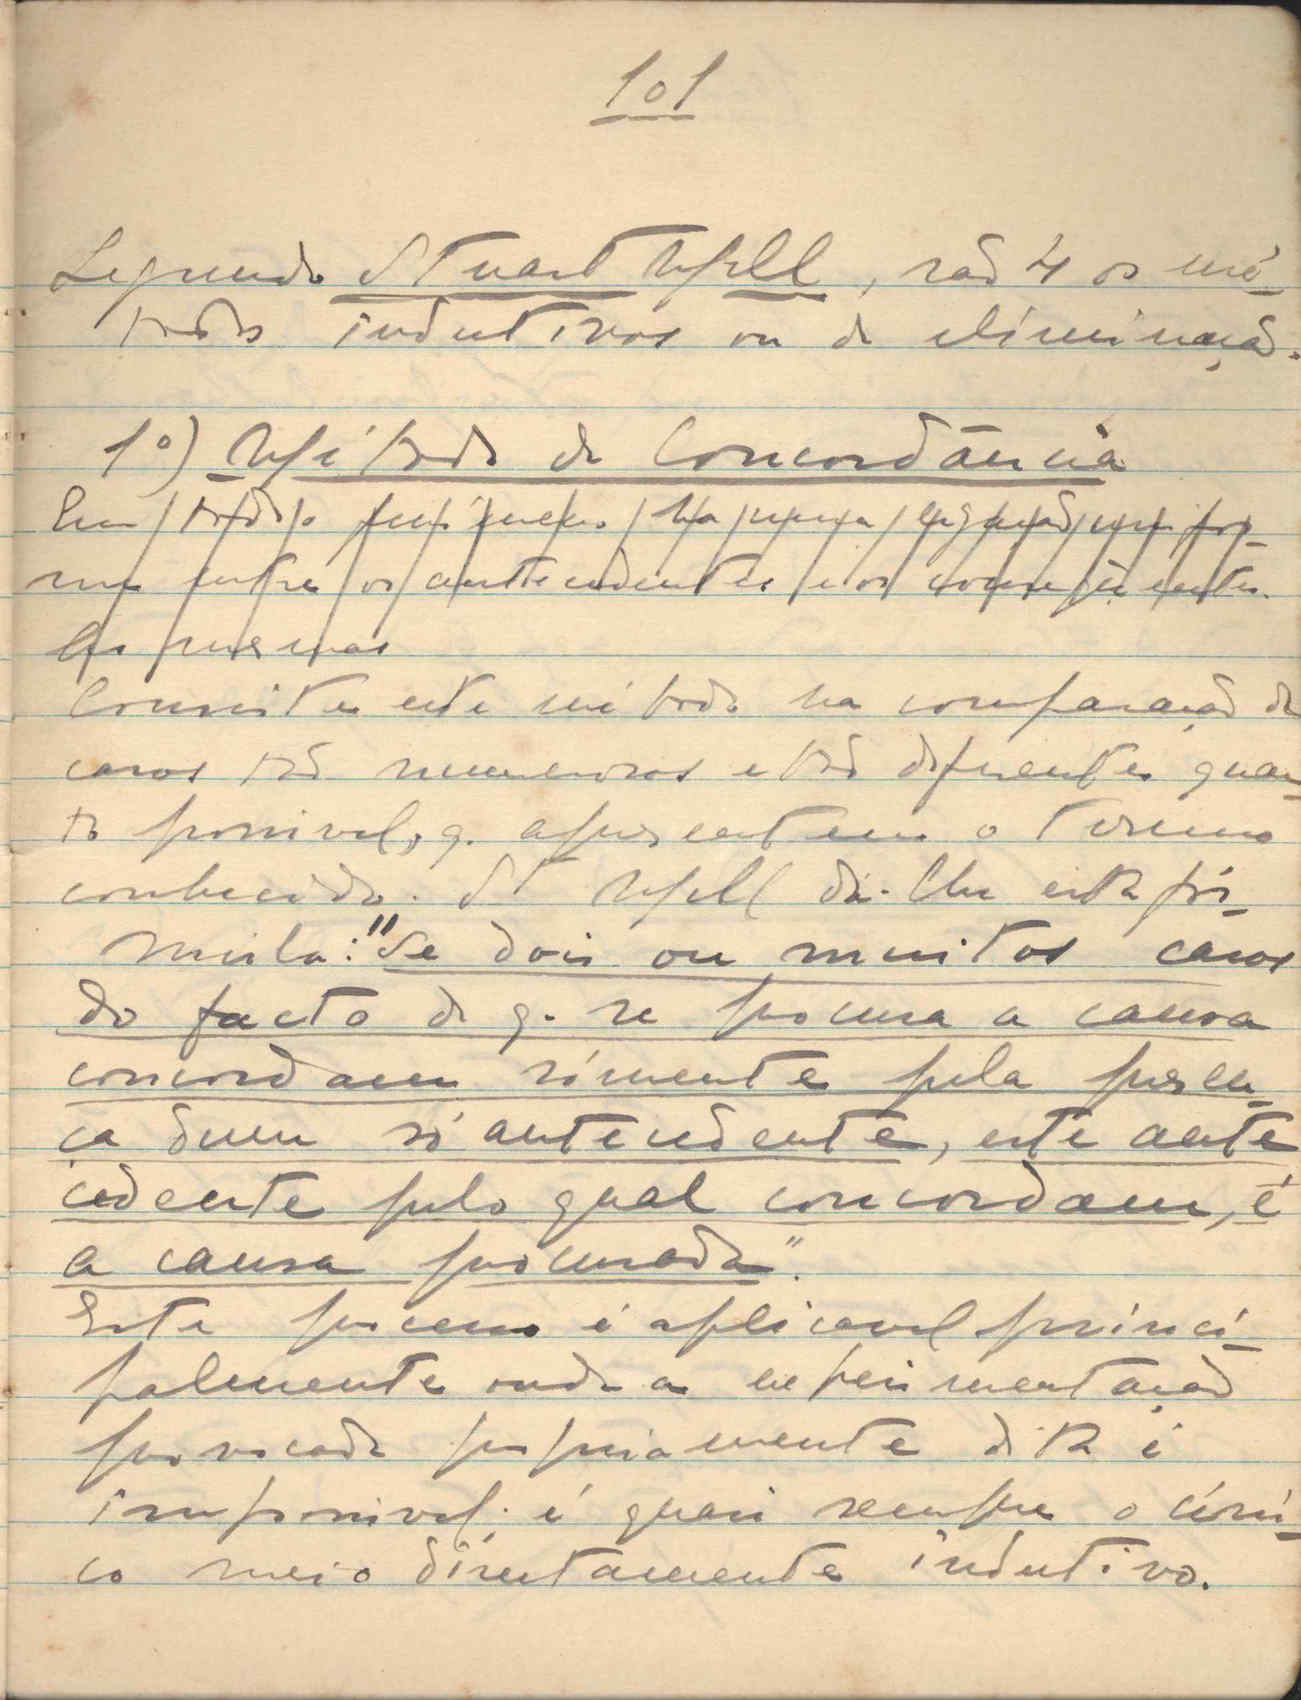 101
Segundo Stuart Mill, são 4 os mé-
todos indutivos ou de eliminação.
1º) Método de Concordância
Em todo o fenómeno há uma ligação unifor-
me entre os antecedentes e os conseqüentes.
As mesmas
Consiste este método na comparação de
casos tão numerosos e tão diferentes quan-
to possivel, q. apresentem o termo
conhecido. St Mill dá-lhe esta fór-
mula: "Se dois ou muitos casos
do facto de q. se procura a causa
concordam sómente pela presen-
ça dum só antecedente, este ante
cedente pelo qual concordam, é
a causa procurada".
Este processo é aplicavel princi-
palmente onde a experimentação
provocada propriamente dita é
impossivel; é quasi sempre o úni-
co meio directamente indutivo.